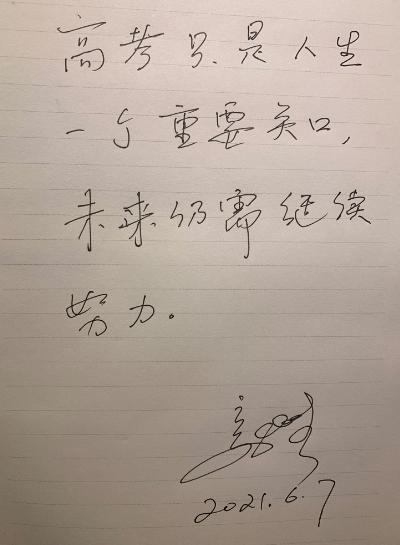 高考只是人生
一个重要关口，
未来仍需继续
努力。
2021.6.7